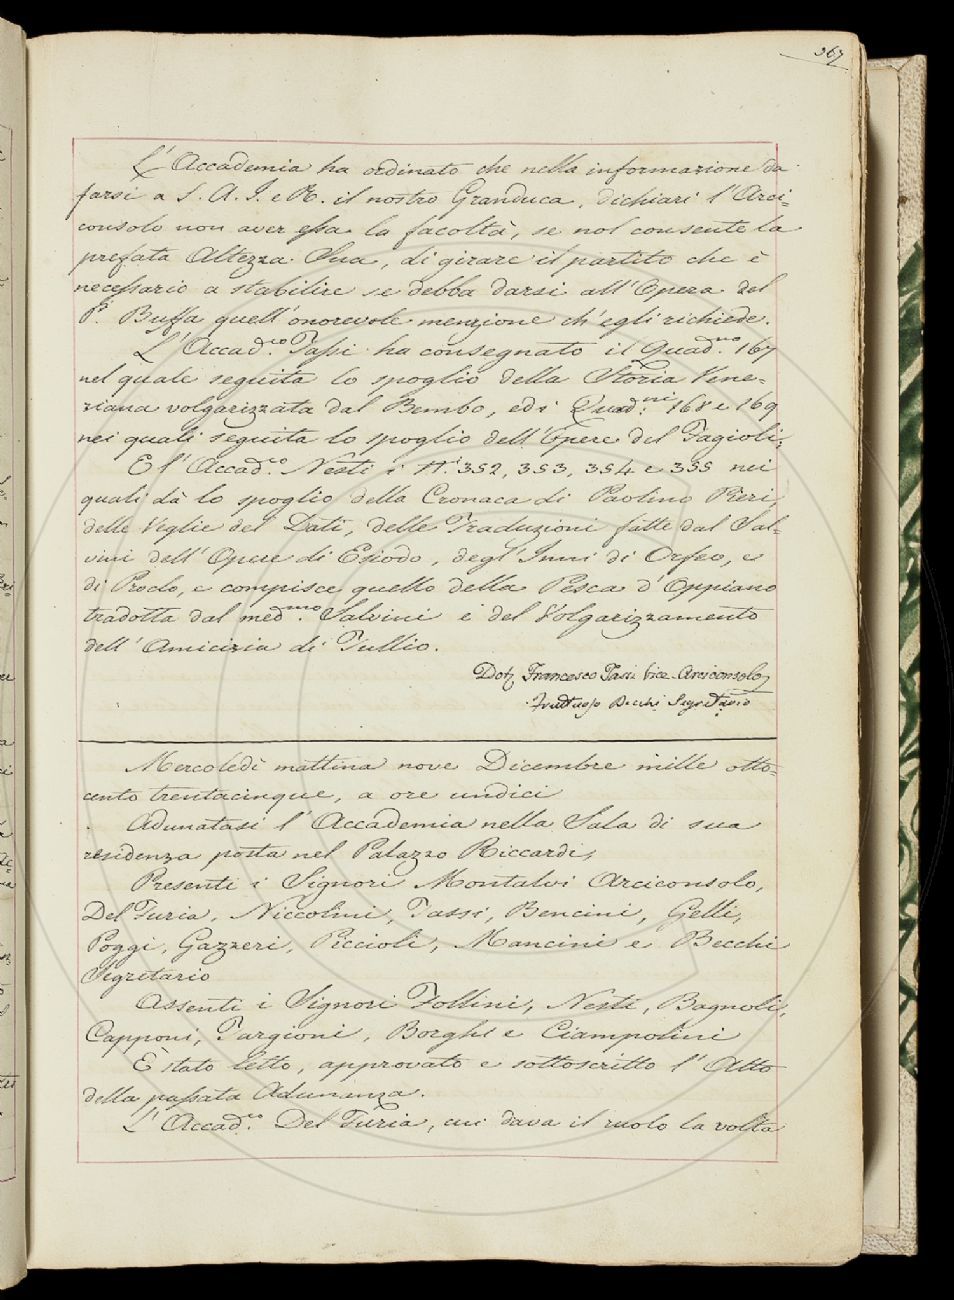 367
L'Accademia ha ordinato che nella informazione da
farsi a S. A. I. e R. il nostro Granduca, dichiari l'Arci=
consolo non aver essa la facoltà, se nol consente la
prefata Altezza Sua, di girare il partito che è
necessario a stabilire se debba darsi all'Opera del
P. Buffa quell'onorevole menzione ch'egli richiede.
L'Accad.co Tassi ha consegnato il Quad.no 167
nel quale seguita lo spoglio della Storia Vene=
ziana volgarizzata dal Bembo, ed i Quad.ni 168 e 169
nei quali seguita lo spoglio dell'Opere del Fagioli;
E l'Accad.co Nesti i N.i 352, 353, 354 e 355 nei
quali dà lo spoglio della Cronaca di Paolino Pieri,
delle Veglie del Dati, delle Traduzioni fatte dal Sal=
vini dell'Opere di Esiodo, degl'Inni di Orfeo, e
di Proclo, e compisce quello della Pesca d'Oppiano
tradotta dal med.mo Salvini e del Volgarizzamento
dell'Amicizia di Tullio.
Dott. Francesco Tassi Vice-Arciconsolo
Fruttuoso Becchi Segretario
Mercoledì mattina nove Dicembre mille otto=
cento trentacinque, a ore undici
Adunatasi l'Accademia nella Sala di sua
residenza posta nel Palazzo Riccardi,
Presenti i Signori Montalvi Arciconsolo,
Del Furia, Niccolini, Tassi, Bencini, Gelli,
Poggi, Gazzeri, Piccioli, Mancini e Becchi
Segretario
Assenti i Signori Follini, Nesti, Bagnoli,
Capponi, Targioni, Borghi e Ciampolini
È stato letto, approvato e sottoscritto l'Atto
della passata Adunanza.
L'Accad.co Del Furia, cui dava il ruolo la volta